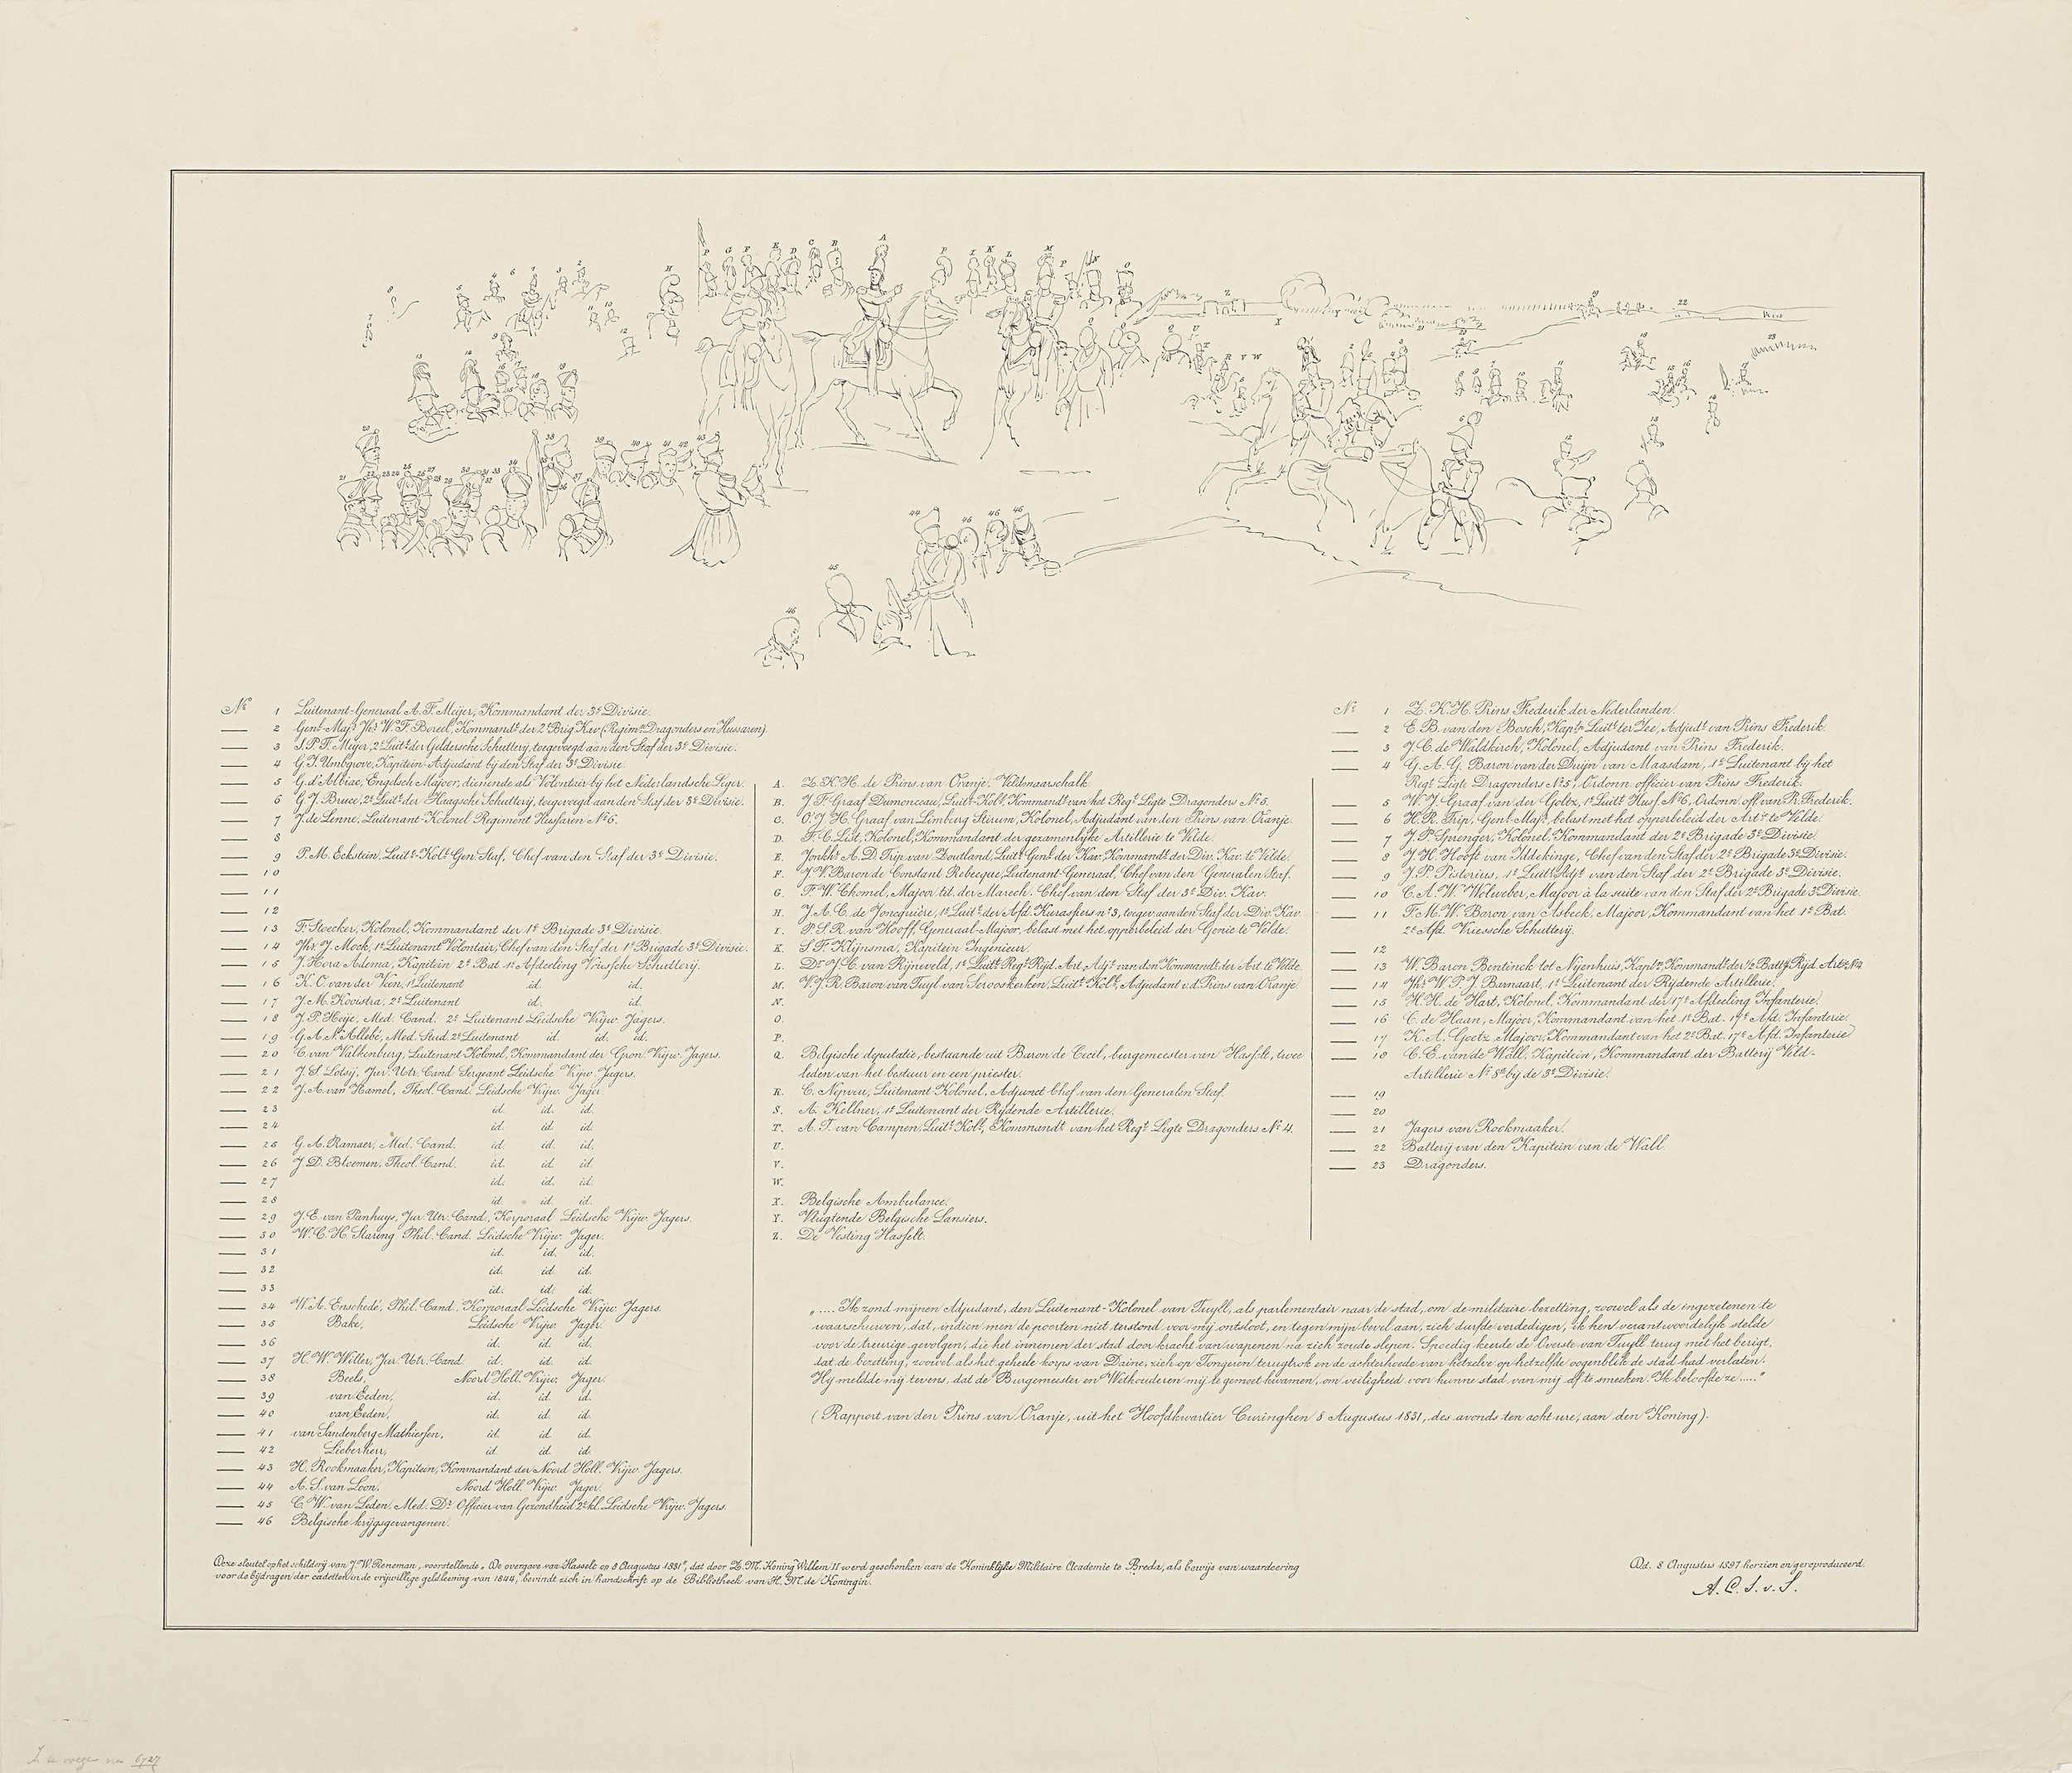 Nº 1 Luitenant-Generaal A. F. Meijer, Kommandant der 3e Divisie.
2 Genl-Majr Jhr W. F. Boreel, Kommandt der 2e Brig Kav (Regimn Dragonders en Hussaren).
3 S. P. F. Meijer, 2e Luitt der Geldersche Schutterij, toegevoegd aan den Staf der 3e Divisie.
4 G. J. Umbgrove, Kapitein-Adjudant bij den Staf der 3e Divisie.
5 G. d'Albiac, Engelsch Majoor, dienende als Volontair bij het Nederlandsche Leger.
6 G. J. Bruce, 2e Luitt der Haagsche Schutterij, toegevoegd aan den Staf der 3e Divisie.
7 J. de Lenne, Luitenant-Kolonel Regiment Husfaren Nº 6.
8
9 P. M. Eckstein, Luitt-Kolt Gen. Staf, Chef van den Staf der 3e Divisie.
10
11
12
13 F. Stoecker, Kolonel, Kommandant der 1e Brigade 3e Divisie.
14 Jhr J. Mock, 1e Luitenant Volontair, Chef van den Staf der 1e Brigade 3e Divisie.
15 J. Hora Adema, Kapitein 2e Bat. 1e Afdeeling Vriesfche Schutterij.
16 K. O. van der Veen, 1e Luitenant id. id.
17 J. M. Kooistra, 2e Luitenant id. id.
18 J. P. Heije, Med. Cand. 2e Luitenant Leidsche Vrijw. Jagers.
19 G. A. N. Allebé, Med. Stud. 2e Luitenant id. id. id.
20 C. van Valkenburg, Luitenant Kolonel, Kommandant der Gron. Vrijw. Jagers.
21 J. S. Lotsij, Jur. Utr. Cand. Sergeant Leidsche Vrijw. Jagers.
22 J. A. van Hamel, Theol. Cand. Leidsche Vrijw. Jager
23 id. id. id.
24 id. id. id.
25 G. A. Ramaer, Med. Cand. id. id. id.
26 J. D. Bloemen, Theol. Cand. id. id. id.
27 id. id. id.
28 id. id. id.
29 J. E. van Panhuys, Jur. Utr. Cand., Korporaal Leidsche Vrijw. Jagers.
30 W. C. H. Staring Phil. Cand. Leidsche Vrijw. Jager.
31 id. id. id.
32 id. id. id.
33 id. id. id.
34 W. A. Enschedé, Phil. Cand. Korporaal Leidsche Vrijw. Jagers.
35 Bake, Leidsche Vrijw. Jager.
36 id. id. id.
37 H. W. Willer, Jur. Utr. Cand. id. id. id.
38 Beels, Noord Holl. Vrijw. Jager.
39 van Eeden, id. id. id.
40 van Eeden, id. id. id.
41 van Sandenberg Mathiesfen, id. id. id.
42 Lieberherr, id. id. id.
43 H. Rookmaaker, Kapitein, Kommandant der Noord Holl. Vrijw. Jagers.
44 A. S. van Loon. Noord Holl. Vrijw. Jager.
45 C. W. van Leden, Med. Dr Officier van Gezondheid 2e kl. Leidsche Vrijw. Jagers.
46 Belgische krijgsgevangenen.
A. Z. K. H. de Prins van Oranje, Veldmaarschalk.
B. J. F. Graaf Dumonceau, Luitt-Koll, Kommandt van het Regt Ligte Dragonders Nº 5.
C. O. J. H. Graaf van Limburg Stirum, Kolonel, Adjudant van den Prins van Oranje.
D. F. C. List, Kolonel, Kommandant der gezamenlijke Artillerie te Velde.
E. Jonkhr A. D. Trip van Zoutland, Luitt Genl der Kav, Kommandt der Div. Kav. te Velde.
F. J. V. Baron de Constant Rebecque, Luitenant-Generaal, Chef van den Generalen Staf.
G. F. W. Chomel, Majoor tit. der Marech. Chef van den Staf der 3e Div. Kav.
H. J. A. C. de Joncquière, 1e Luitt der Afd. Kurasfiers nº 3, toegev. aan den Staf der Div. Kav.
I. P. S. R. van Hooff Generaal-Majoor, belast met het opperbeleid der Genie te Velde.
K. S. T. Klijnsma, Kapitein Ingenieur.
L. Dr J. C. van Rijneveld, 1e Luitt Regt Rijd. Art, Adjt van den Kommandt der Art. te Velde.
M. V. J. R. Baron van Tuyl van Serooskerken, Luitt Koll, Adjudant v. d. Prins van Oranje.
N.
O.
P.
Q. Belgische deputatie, bestaande uit Baron de Cecil, burgemeester van Hasfelt, twee
leden van het bestuur en een priester.
R. C. Nepveu, Luitenant Kolonel, Adjunct Chef van den Generalen Staf.
S. A. Kellner, 1e Luitenant der Rijdende Artillerie.
T. A. T. van Campen, Luitt Koll, Kommandt van het Regt Ligte Dragonders Nº 4.
U.
V.
W.
X. Belgische Ambulance.
Y. Vlugtende Belgische Lansiers.
Z. De Vesting Hasfelt.
Nº 1 Z. K. H. Prins Frederik der Nederlanden.
2 E. B. van den Bosch, Kaptn Luitt ter Zee, Adjudt van Prins Frederik.
3 J. C. de Waldkirch, Kolonel, Adjudant van Prins Frederik.
4 G. A. G. Baron van der Duijn van Maasdam, 1e Luitenant bij het
Regt Ligte Dragonders Nº 5, Ordonn. officier van Prins Frederik.
5 W. J. Graaf van der Goltz, 1e Luitt Husf Nº 6, Ordonn. off. van P. Frederik.
6 H. R. Trip, Genl-Majr, belast met het opperbeleid der Artie te Velde.
7 J. P. Sprenger, Kolonel, Kommandant der 2e Brigade 3e Divisie.
8 J. H. Hooft van Iddekinge, Chef van den Staf der 2e Brigade 3e Divisie.
9 J. P. Pistorius, 1e Luitt Adjt van den Staf der 2e Brigade 3e Divisie.
10 C. A. W. Wolweber, Majoor à la suite van den Staf der 2e Brigade 3e Divisie.
11 F. M. W. Baron van Asbeck, Majoor, Kommandant van het 1e Bat.
2e Afd. Vriessche Schutterij.
12
13 W. Baron Bentinck tot Nijenhuis, Kaptn, Kommandt der 1/2 Battij Rijd. Artie Nº 4
14 Jhr W. P. J. Barnaart, 1e Luitenant der Rijdende Artillerie.
15 H. H. de Hart, Kolonel, Kommandant der 17e Afdeeling Infanterie.
16 C. de Haan, Majoor, Kommandant van het 1e Bat. 17e Afd. Infanterie.
17 K. A. Goetz, Majoor, Kommandant van het 2e Bat. 17e Afd. Infanterie
18 C. E. van de Wall, Kapitein, Kommandant der Batterij Veld-
Artillerie Nº 8 bij de 3e Divisie.
19
20
21 Jagers van Rookmaaker.
22 Batterij van den Kapitein van de Wall.
23 Dragonders.
„.... Ik zond mijnen Adjudant, den Luitenant-Kolonel van Tuyll, als parlementair naar de stad, om de militaire bezetting, zoowel als de ingezetenen te
waarschuwen, dat, indien men de poorten niet terstond voor mij ontsloot, en tegen mijn bevel aan, zich durfde verdedigen, ik hen verantwoordelijk stelde
voor de treurige gevolgen, die het innemen der stad door kracht van wapenen na zich zoude slepen. Spoedig keerde de Overste van Tuyll terug met het berigt,
dat de bezetting, zoowel als het geheele korps van Daine, zich op Tongeren terugtrok en de achterhoede van hetzelve op hetzelfde oogenblik de stad had verlaten.
Hij meldde mij tevens, dat de Burgemeester en Wethouderen mij te gemoet kwamen, om veiligheid voor hunne stad van mij af te smeeken. Ik beloofde ze....."
(Rapport van den Prins van Oranje, uit het Hoofdkwartier Curinghen 8 Augustus 1831, des avonds ten acht ure, aan den Koning).
Deze sleutel op het schilderij van J. W. Pieneman, voorstellende „De overgave van Hasselt op 8 Augustus 1831", dat door Z. M. Koning Willem II werd geschonken aan de Koninklijke Militaire Academie te Breda, als bewijs van waardeering
voor de bijdragen der cadetten in de vrijwillige geldleening van 1844, bevindt zich in handschrift op de Bibliotheek van H. M. de Koningin.
Dd. 8 Augustus 1897 herzien en gereproduceerd.
A. C. S. v. S.